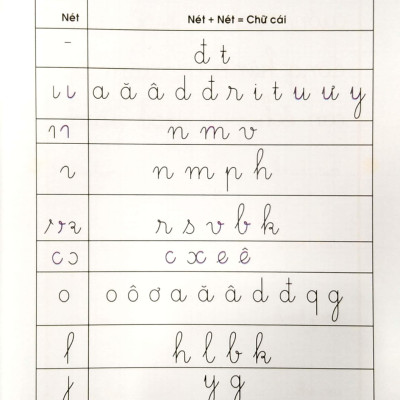 Nét	Nét + Nét = Chữ cái
– đ t
a ă â d đ r i t u ư y
n m v
n m p h
r s v b k
c ɔ c x e ê
o o ô ơ a ă â d đ q g
h l b k
y g